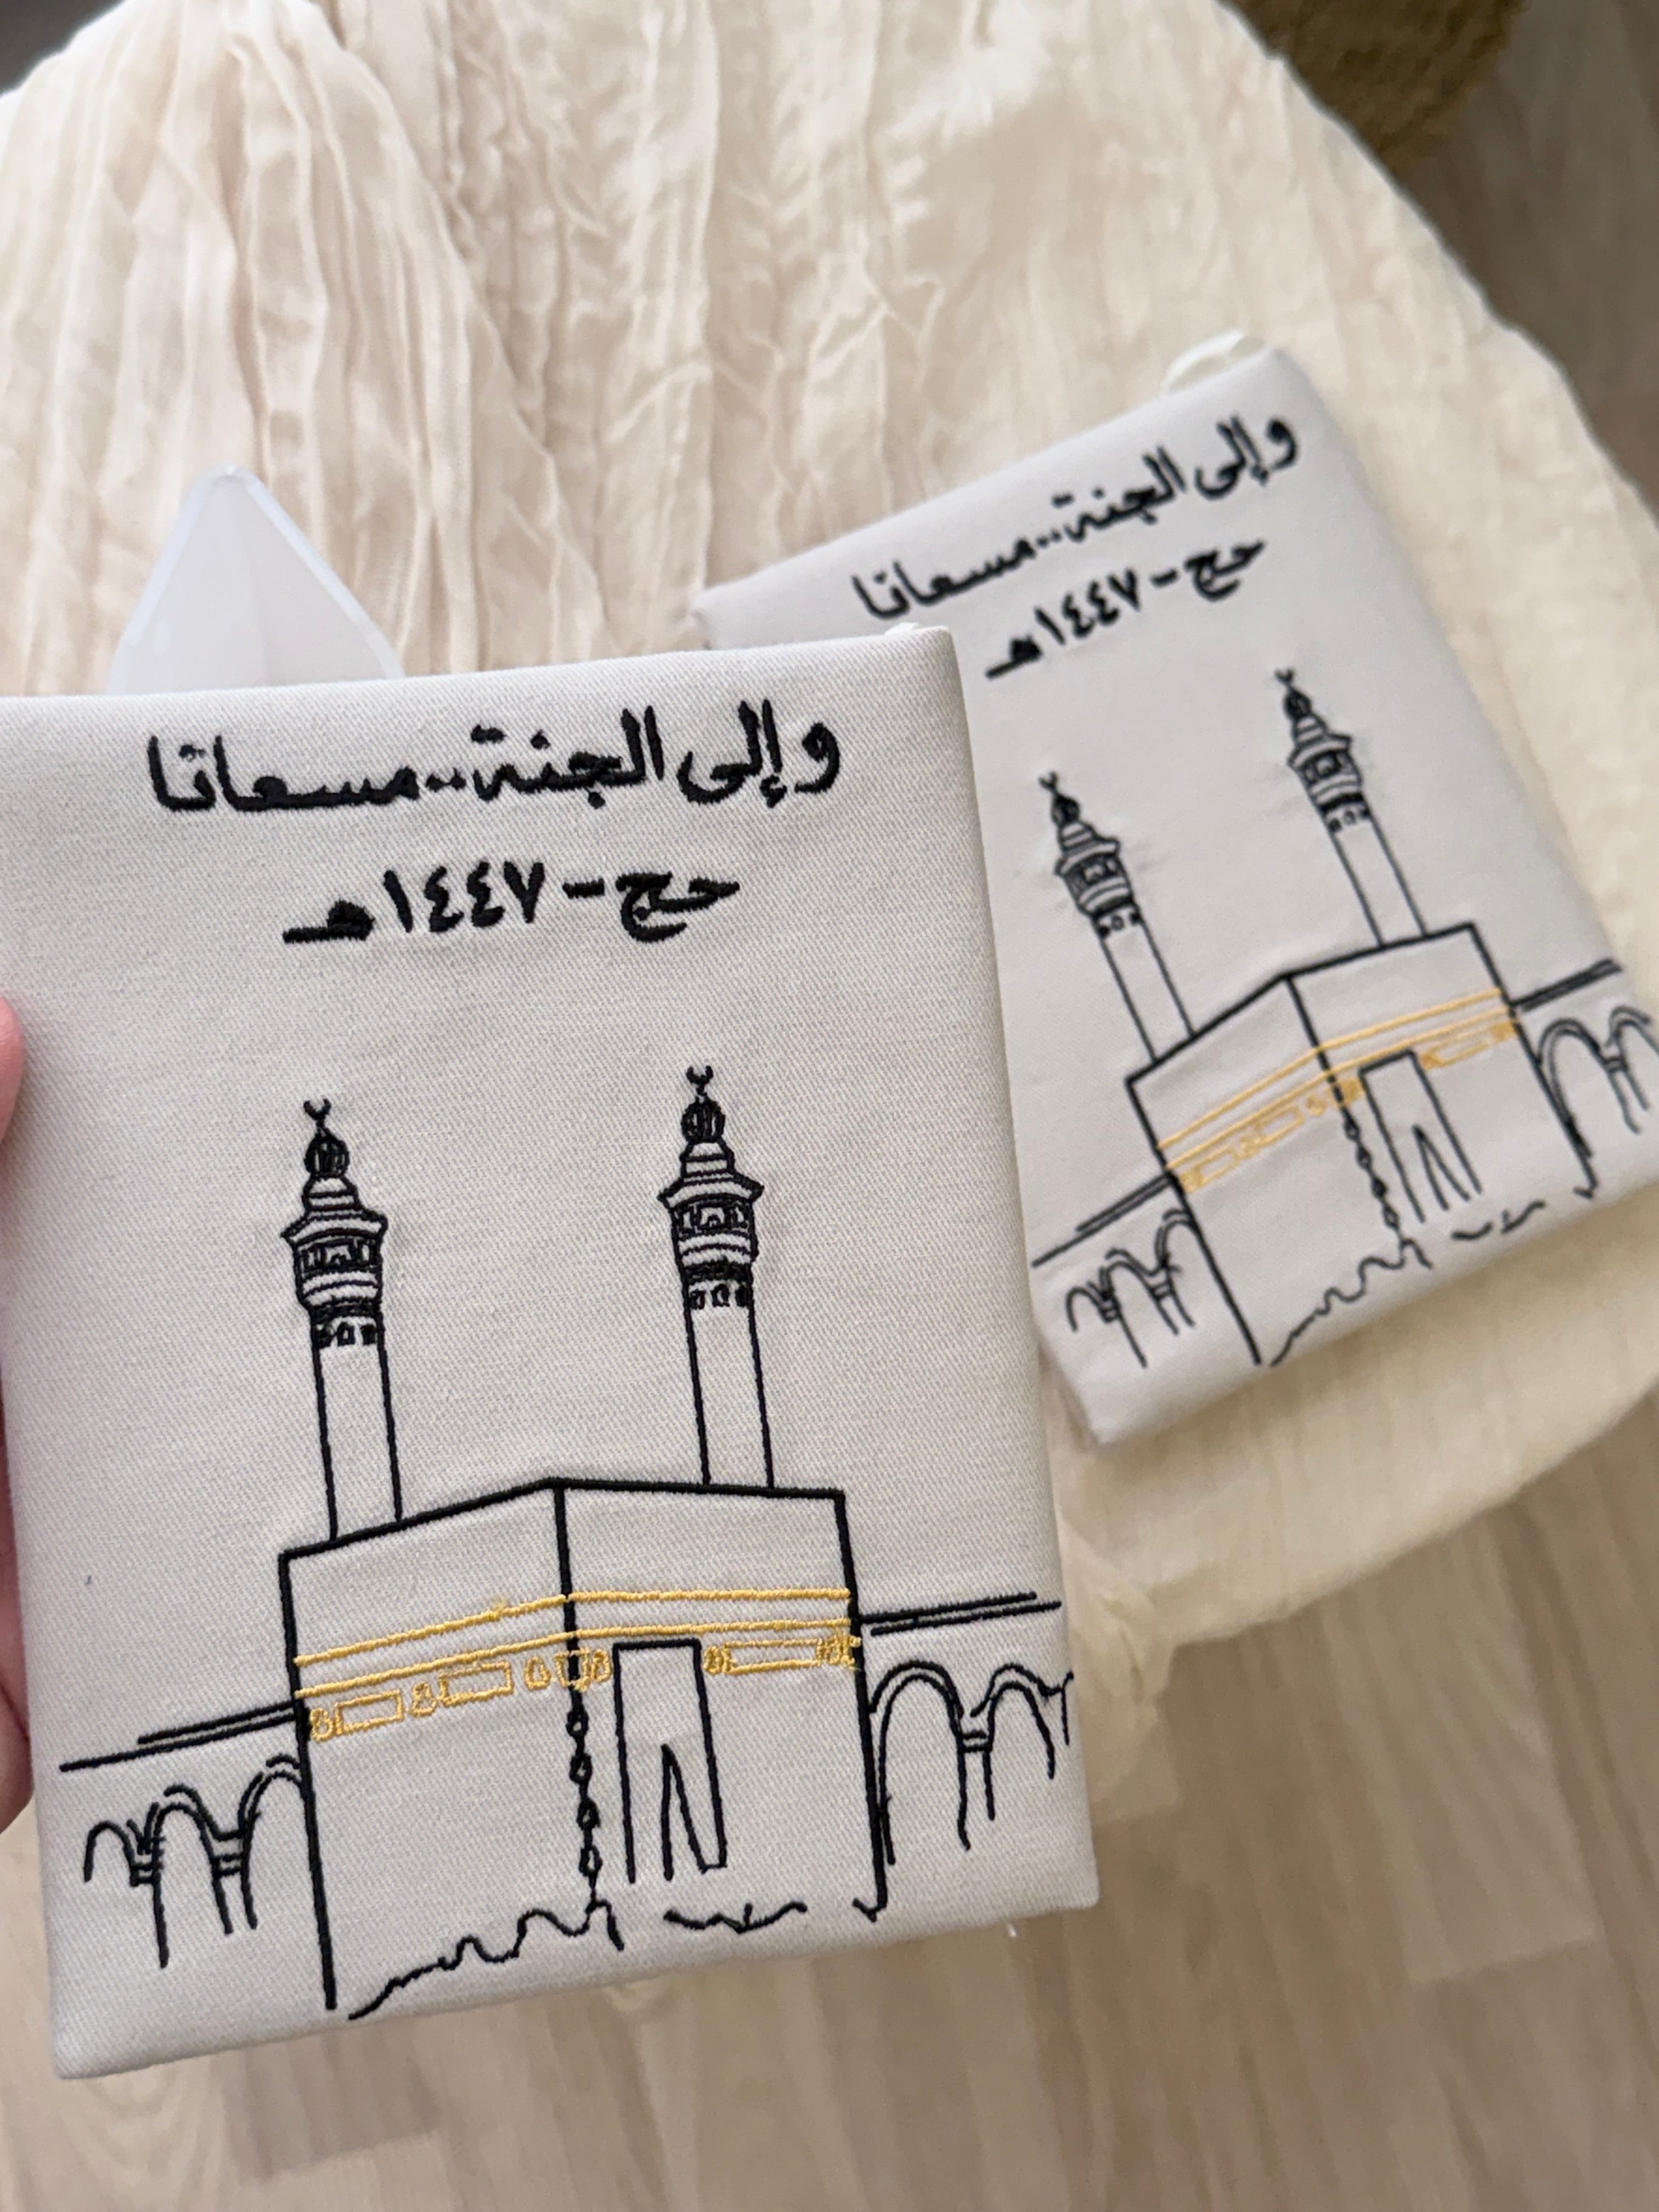 وإلى الجنة..مسعانا
حج - ١٤٤٧هـ
وإلى الجنة..مسعانا
حج - ١٤٤٧هـ